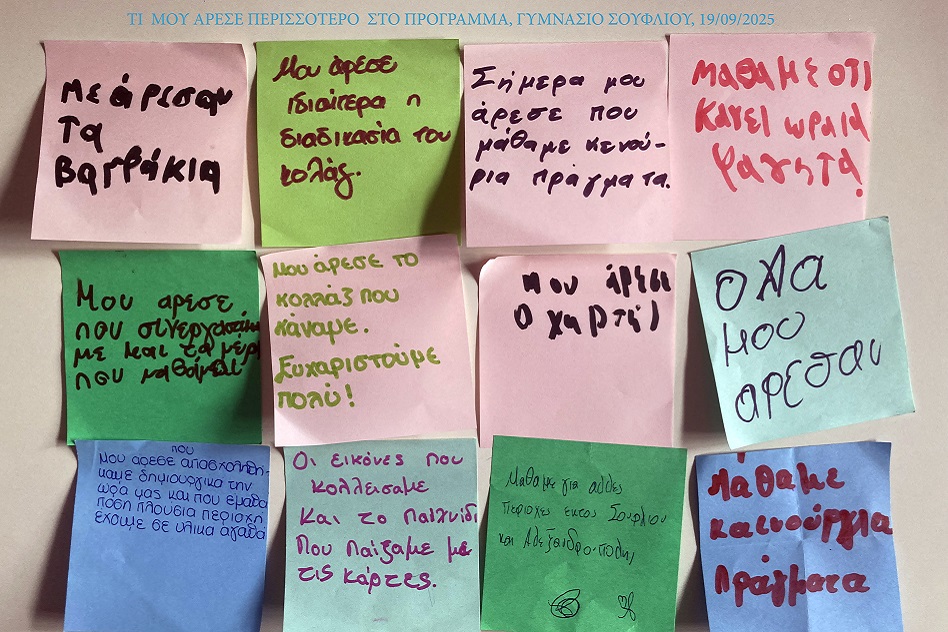 ΤΙ ΜΟΥ ΑΡΕΣΕ ΠΕΡΙΣΣΟΤΕΡΟ ΣΤΟ ΠΡΟΓΡΑΜΜΑ, ΓΥΜΝΑΣΙΟ ΣΟΥΦΛΙΟΥ, 19/09/2025
Με άρεσαν
τα
βατράκια
Μου άρεσε
ιδιαίτερα η
διαδικασία του
κολάζ.
Σήμερα μου
άρεσε που
μάθαμε κενού-
ρια πράγματα.
Μαθαμε οτι
κανει ωραια
φαγητα!
Μου αρεσε,
που
με και τα μέρη
που μαθάμε!
Μου άρεσε το
κολλάζ που
κάναμε.
Ευχαριστούμε
πολύ!
Μου άρεσε
ο χαρτης!
Ολα
μου
αρεσαν
που
Μου αρεσε απασχολήθη-
καμε δημιουργικα την
ωρα μας και που εμαθα
ποση πλουσια περιοχη
εχουμε σε υλικα αγαθα
Οι εικόνες που
κολλεισαμε
Και το παιχνίδι
που παίζαμε με
τις κάρτες.
Μαθαμε για αλλες
περιοχες εκτος Σουφλιου
και Αλεξανδρο-πολης
Μάθαμε
καινούργια
πράγματα